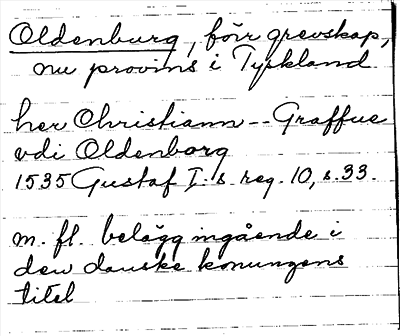 Oldenburg, förr grevskap,
nu provins i Tyskland
her Christiann -- Graffue
vdi Oldenborg
1535 Gustaf I:s reg. 10, s. 33.
m. fl. belägg ingående i
den danske konungens
titel